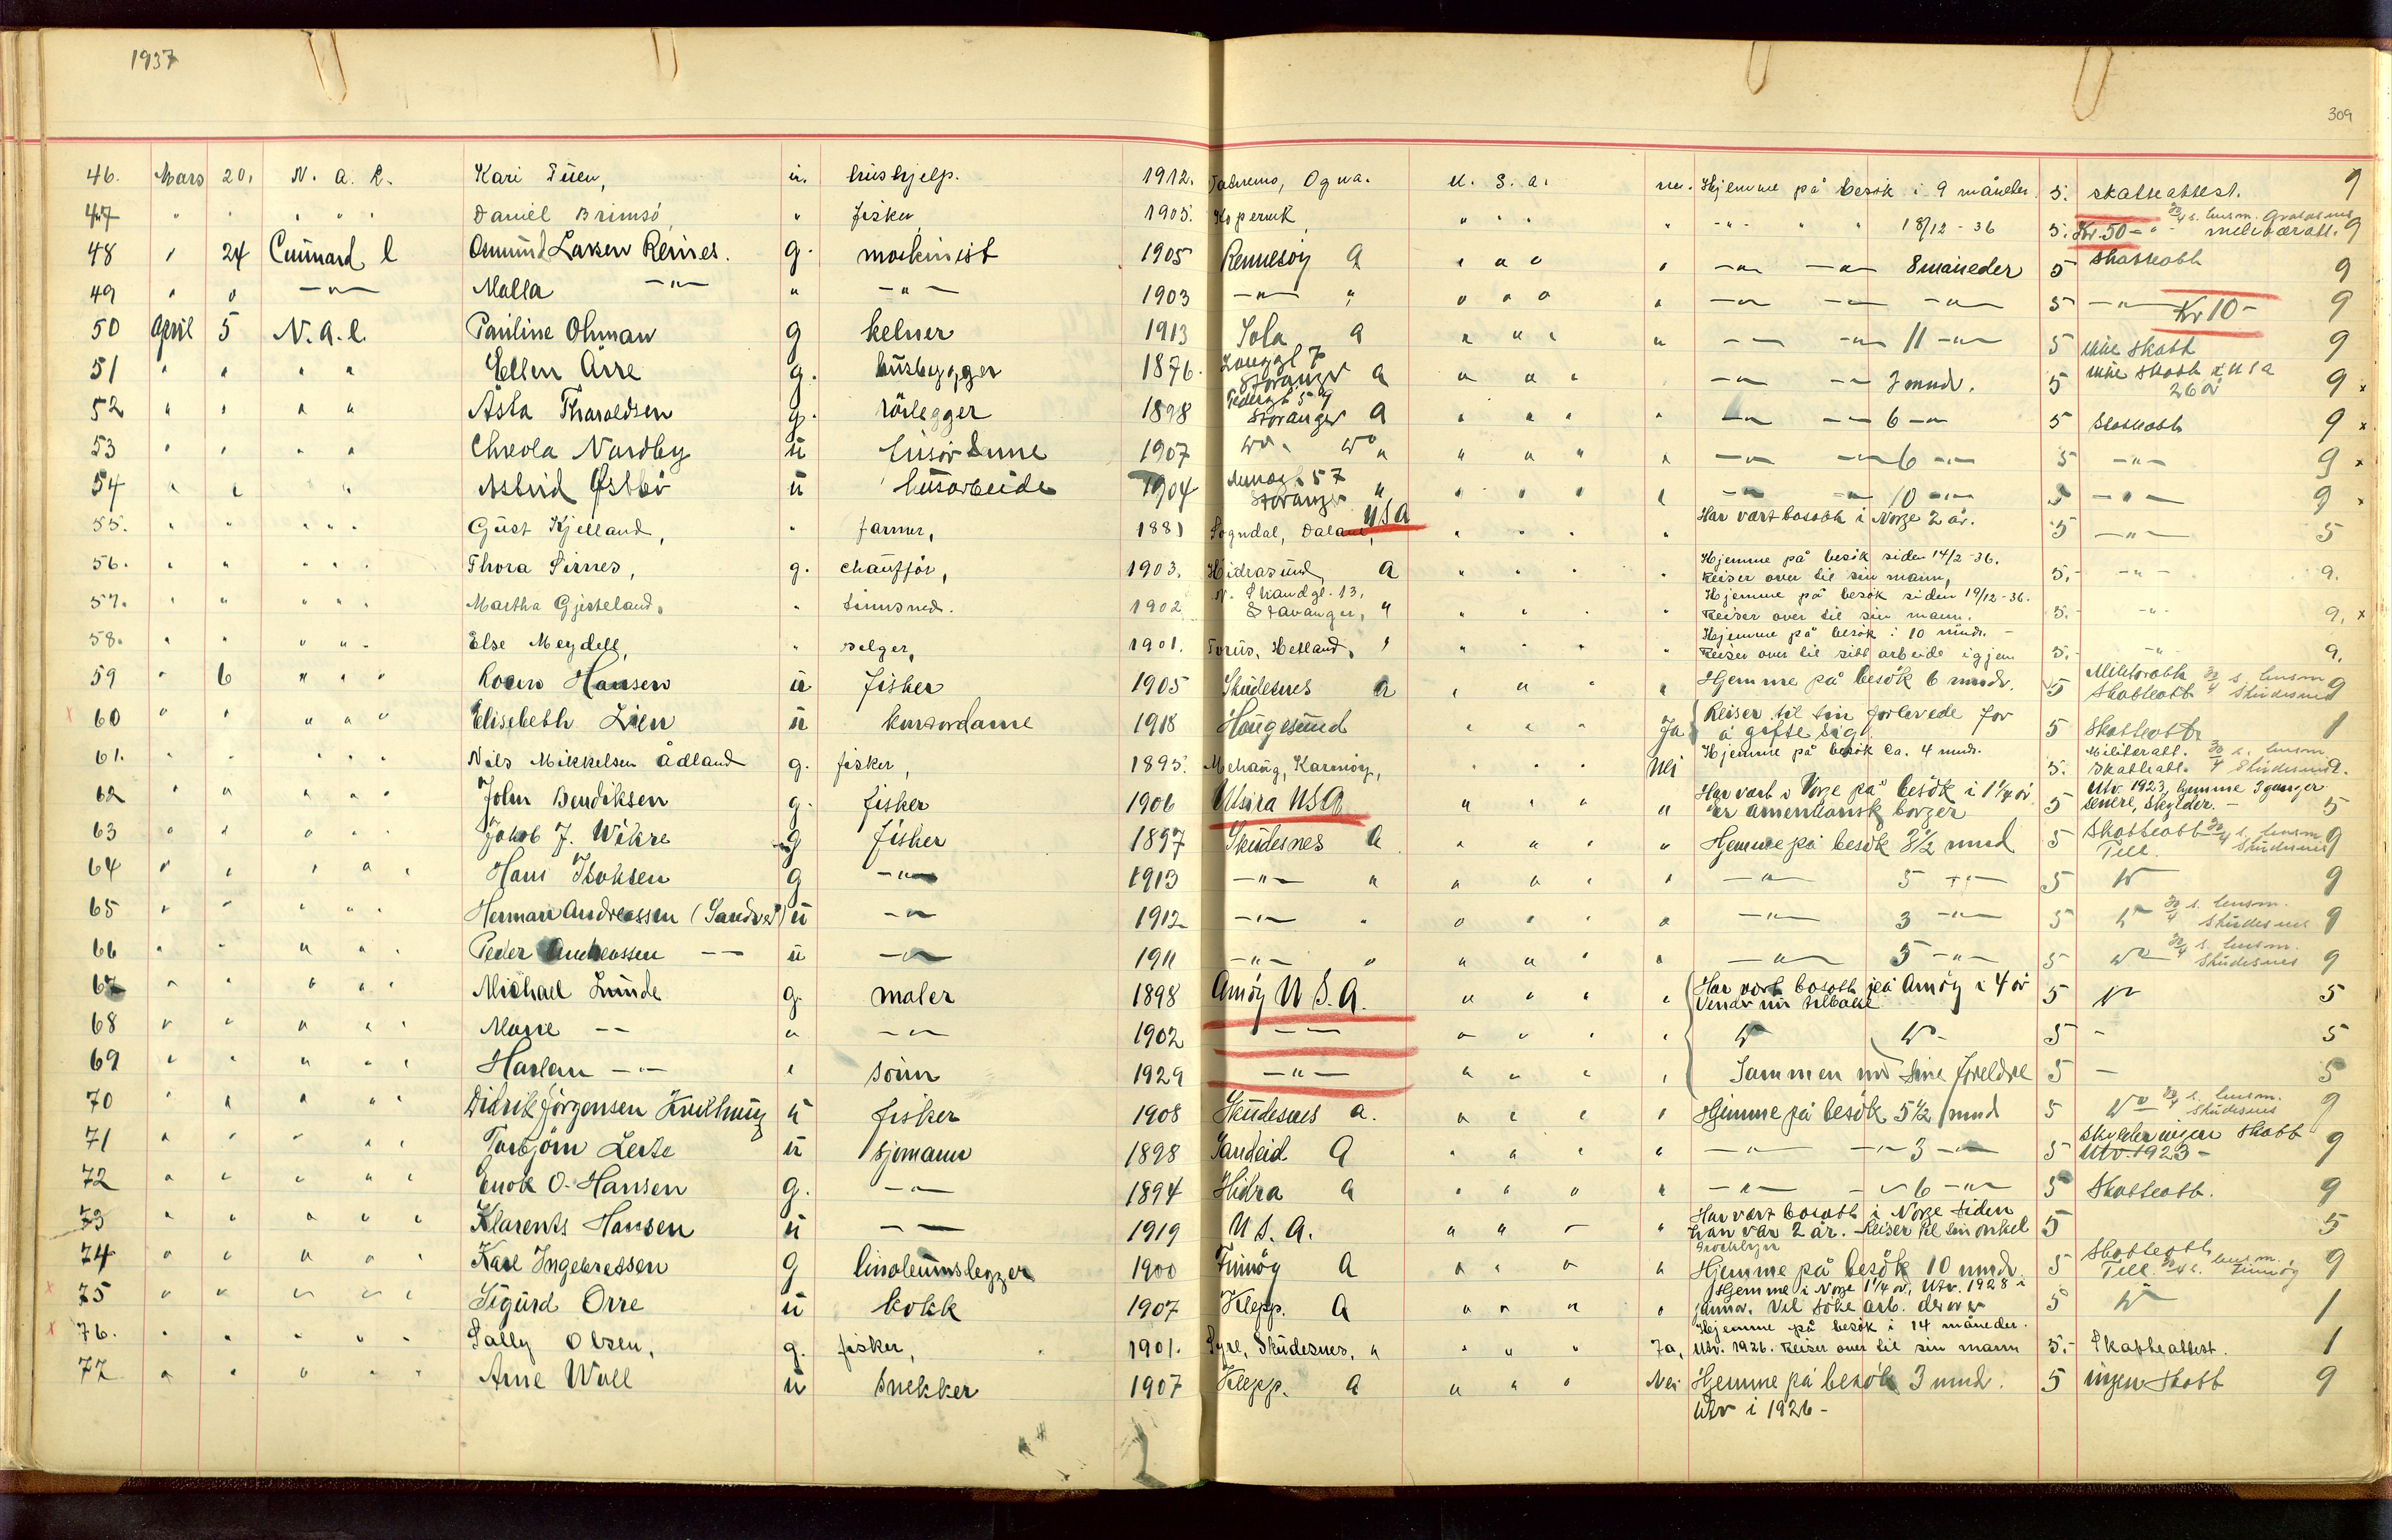 1937
309
46. Mars 20. N. A. L. Kari Tuen, u. hushjelp. 1912. Ogna. U. S. A. nei. Hjemme på besøk i 9 måneder. 5. skatteattest. 9
47 " " " " " Daniel Brimsø, " fisker 1905. Kopervik, " " " " - " - " " 18/12 - 36 5. Kr. 50 - " - militæratt. 9
48 " 24 Cunnard l Osmund Larsen Reines. g. maskinist 1905 Rennesøy A " " " " — " — — " — 8 måneder 5 skatteatt 9
49 " " — " — Malla — " — " — " — 1903 — " — " " " " " — " — — " — — " — 5 — " — Kr 10 - 9
50 April 5 N. A. L. Pauline Ohman g kelner 1913 Sola A " " " " — — — " — 11 — " — 5 ikke skatt 9
51 " " " " Ellen Årre g. husbygger 1876. Stavanger A " " " — " — — — 3 mndr. 5 ikke skatt i USA 26 år 9 x
52 " " " " Åsta Tharaldsen g. rørlegger 1898 Pedersgt 59 Stavanger A " " " " — " — — — 6 — " — 5 Skatteatt 9 x
53 " " " " Nordby u husarb. 1907 do. do " " " " " — " — — " — 6 — " — 5 — " — 9 x
54 " " " Astrid Østbø u husarbeide 1904 57 Stavanger " " " " " — " — — " — 10 — " — 5 — " — 9 x
55. " " " " " Gust Kjelland, " farmer, 1881 Sogndal, Dalane, USA " " " " Har vært bosatt i Norge 2 år. 5 — " — 5
56. " " " " " Thora Sirnes, g. chauffør, 1903. Hidrasund, A " " " " Hjemme på besøk siden 14/2 - 36.
Reiser over til sin mann, 5. - " - 9.
57. " " " " " Martha Gjesteland, " tømsned. 1902 N. Strandgt. 13, Stavanger, " " " " " Hjemme på besøk siden 19/12 - 36.
Reiser over til sin mann. 5. - " - 9. x
58. " " " " - Else Meydell, " selger, 1901. Hetland, " " " " " Hjemme på besøk i 10 mndr. -
Reiser over til sitt arbeide igjen 5. - " - 9.
59 " 6 " " " Hansen u fisker 1905 Skudesnes A " " " " Hjemme på besøk 6 mndr. 5 Militæratt 30/4 s. lensm Skatteatt Skudesnes 9
x 60 " " " " " Elisebeth Lien u kontordame 1918 Haugesund " " " Ja Reiser til sin forlovede for
å gifte sig. 5 Skatteatt 1
61. " " " " " Nils Mikkelsen Ådland g. fisker, 1895. Mehaug, Karmøy, " " " Nei Hjemme på besøk ca. 4 mndr. 5. Militæratt. 30/4 s. lensm skatteatt. Skudesnes.
62 " " " " " John Bendiksen g. fisker 1906 Utsira USA " " " " Har vært i Norge på besøk i 1 1/4 år
er amerikansk borger 5 Utv. 1923, hjemme 3 ganger senere, skylder. - 5
63 " " " " " Jakob J. Wikre g fisker 1897 Skudesnes A " " " " Hjemme på besøk 3 1/2 mnd 5 Skatteatt 30/4 s. lensm Till. Skudesnes 9
64 " " " " " Hans Isaksen g — " — 1913 — " — " " " " " — " — 5 — " — 5 do 9
65 " " " " " Herman Andreassen (Sandve) u — " — 1912 — " — " " " — " — 3 — " — 5 do 30/4 s. lensm. Skudesnes 9
66 " " " " " Peder Andreassen — — u — " — 1911 — " — " " " " " — " — 5 — " — 5 do 30/4 s. lensm. Skudesnes 9
67 " " " " " Michael Lunde g. maler 1898 Amøy U. S. A. " " " " Har vært bosatt på Amøy i 4 år
Vender nu tilbake 5 do 5
68 " " " " " — — " — " — 1902 — — " " " " do do - 5 - 5
69 " " " " " Harlan — " — " sønn 1929 — " — " " " " Sammen med sine foreldre 5 - 5
70 " " " " " Didrik Jørgensen u fisker 1908 Skudesnes A. " " " " Hjemme på besøk 5 1/2 mnd 5 do 30/4 s. lensm. Skudesnes 9
71 " " " " " Torbjørn Leite u sjømann 1898 Sandeid A " " " " — " — — " — 3 — " — 5 Skylder ingen skatt Utv. 1923 - 9
72 " " " " " Enok O. Hansen g. — " — 1894 Hidra A " " " " — " — — " — 6 — " — 5 Skatteatt. 9
73 " " " " " Klarents Hansen u — — 1919 U. S. A. " " " Har vært bosatt i Norge siden
han var 2 år. - Reiser til sin onkel 5 5
Brooklyn
74 " " " " " Karl Ingebretsen g linoleumslegger 1900 Finnøy A " " " " Hjemme på besøk 10 mndr. 5 Skatteatt Till. lensm. Finnøy 9
x 75 " " " " " Sigurd Orre u kokk 1907 Klepp. A " " " " Hjemme i Norge 1 1/4 år, Utv. 1928 i
januar. Vil søke arb. derover 5 do 1
x 76. " " " " " Sally Olsen, g. fisker, 1901. Syre, Skudesnes, " " " " Ja, Hjemme på besøk i 14 måneder.
Utv. 1926. Reiser over til sin mann 5. - Skatteattest. 1
77 " " " " " Arne Wall u snekker 1907 Klepp. A " " " Nei Hjemme på besøk 3 mnd. 5 ingen skatt 9
Utv i 1926 -